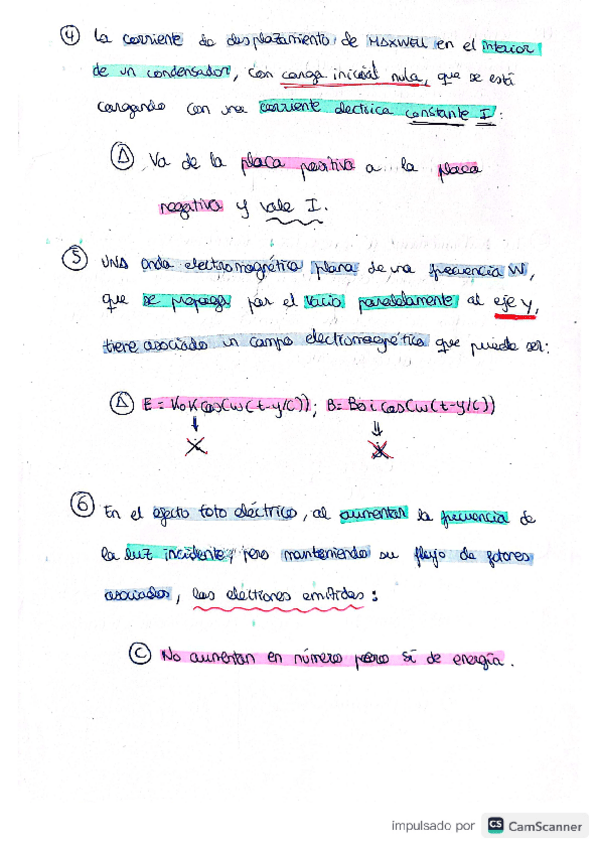 ④ La corriente de desplazamiento de MAXWELL en el interior
de un condensador, con carga inicial nula, que se está
cargando con una corriente electrica constante I:
Ⓐ Va de la placa positiva a la placa
negativa y vale I.
⑤ UNA onda electromagnética plana de una frecuencia W,
que se propaga por el vacio paralelamente al eje y,
tiene asociado un campo electromagnético que puede ser:
Ⓐ E = K0 K cos(w(t-y/c)); B = B0 i cos(w(t-y/c))
⑥ En el efecto foto eléctrico, al aumentar la frecuencia de
la luz incidente, pero manteniendo su flujo de fotones
asociados, los electrones emitidos:
Ⓒ No aumentan en número pero si de energía.
impulsado por CS CamScanner